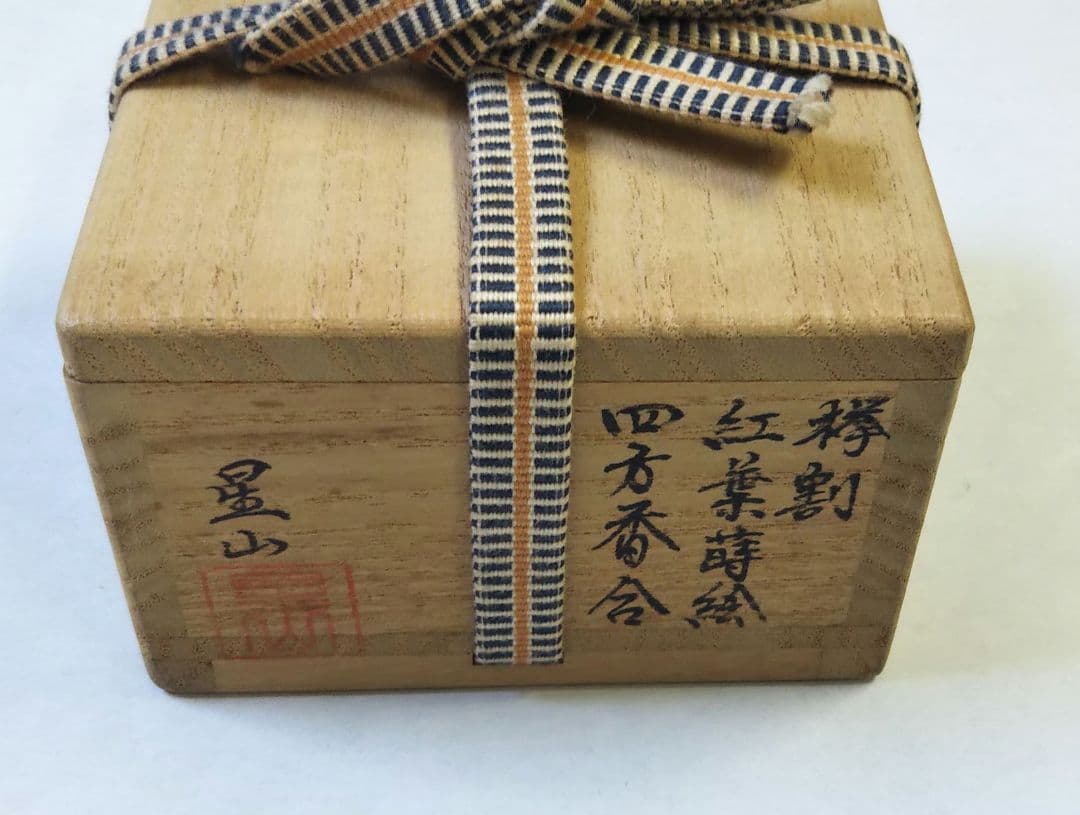 襷割
紅葉蒔絵
四方香合
星山